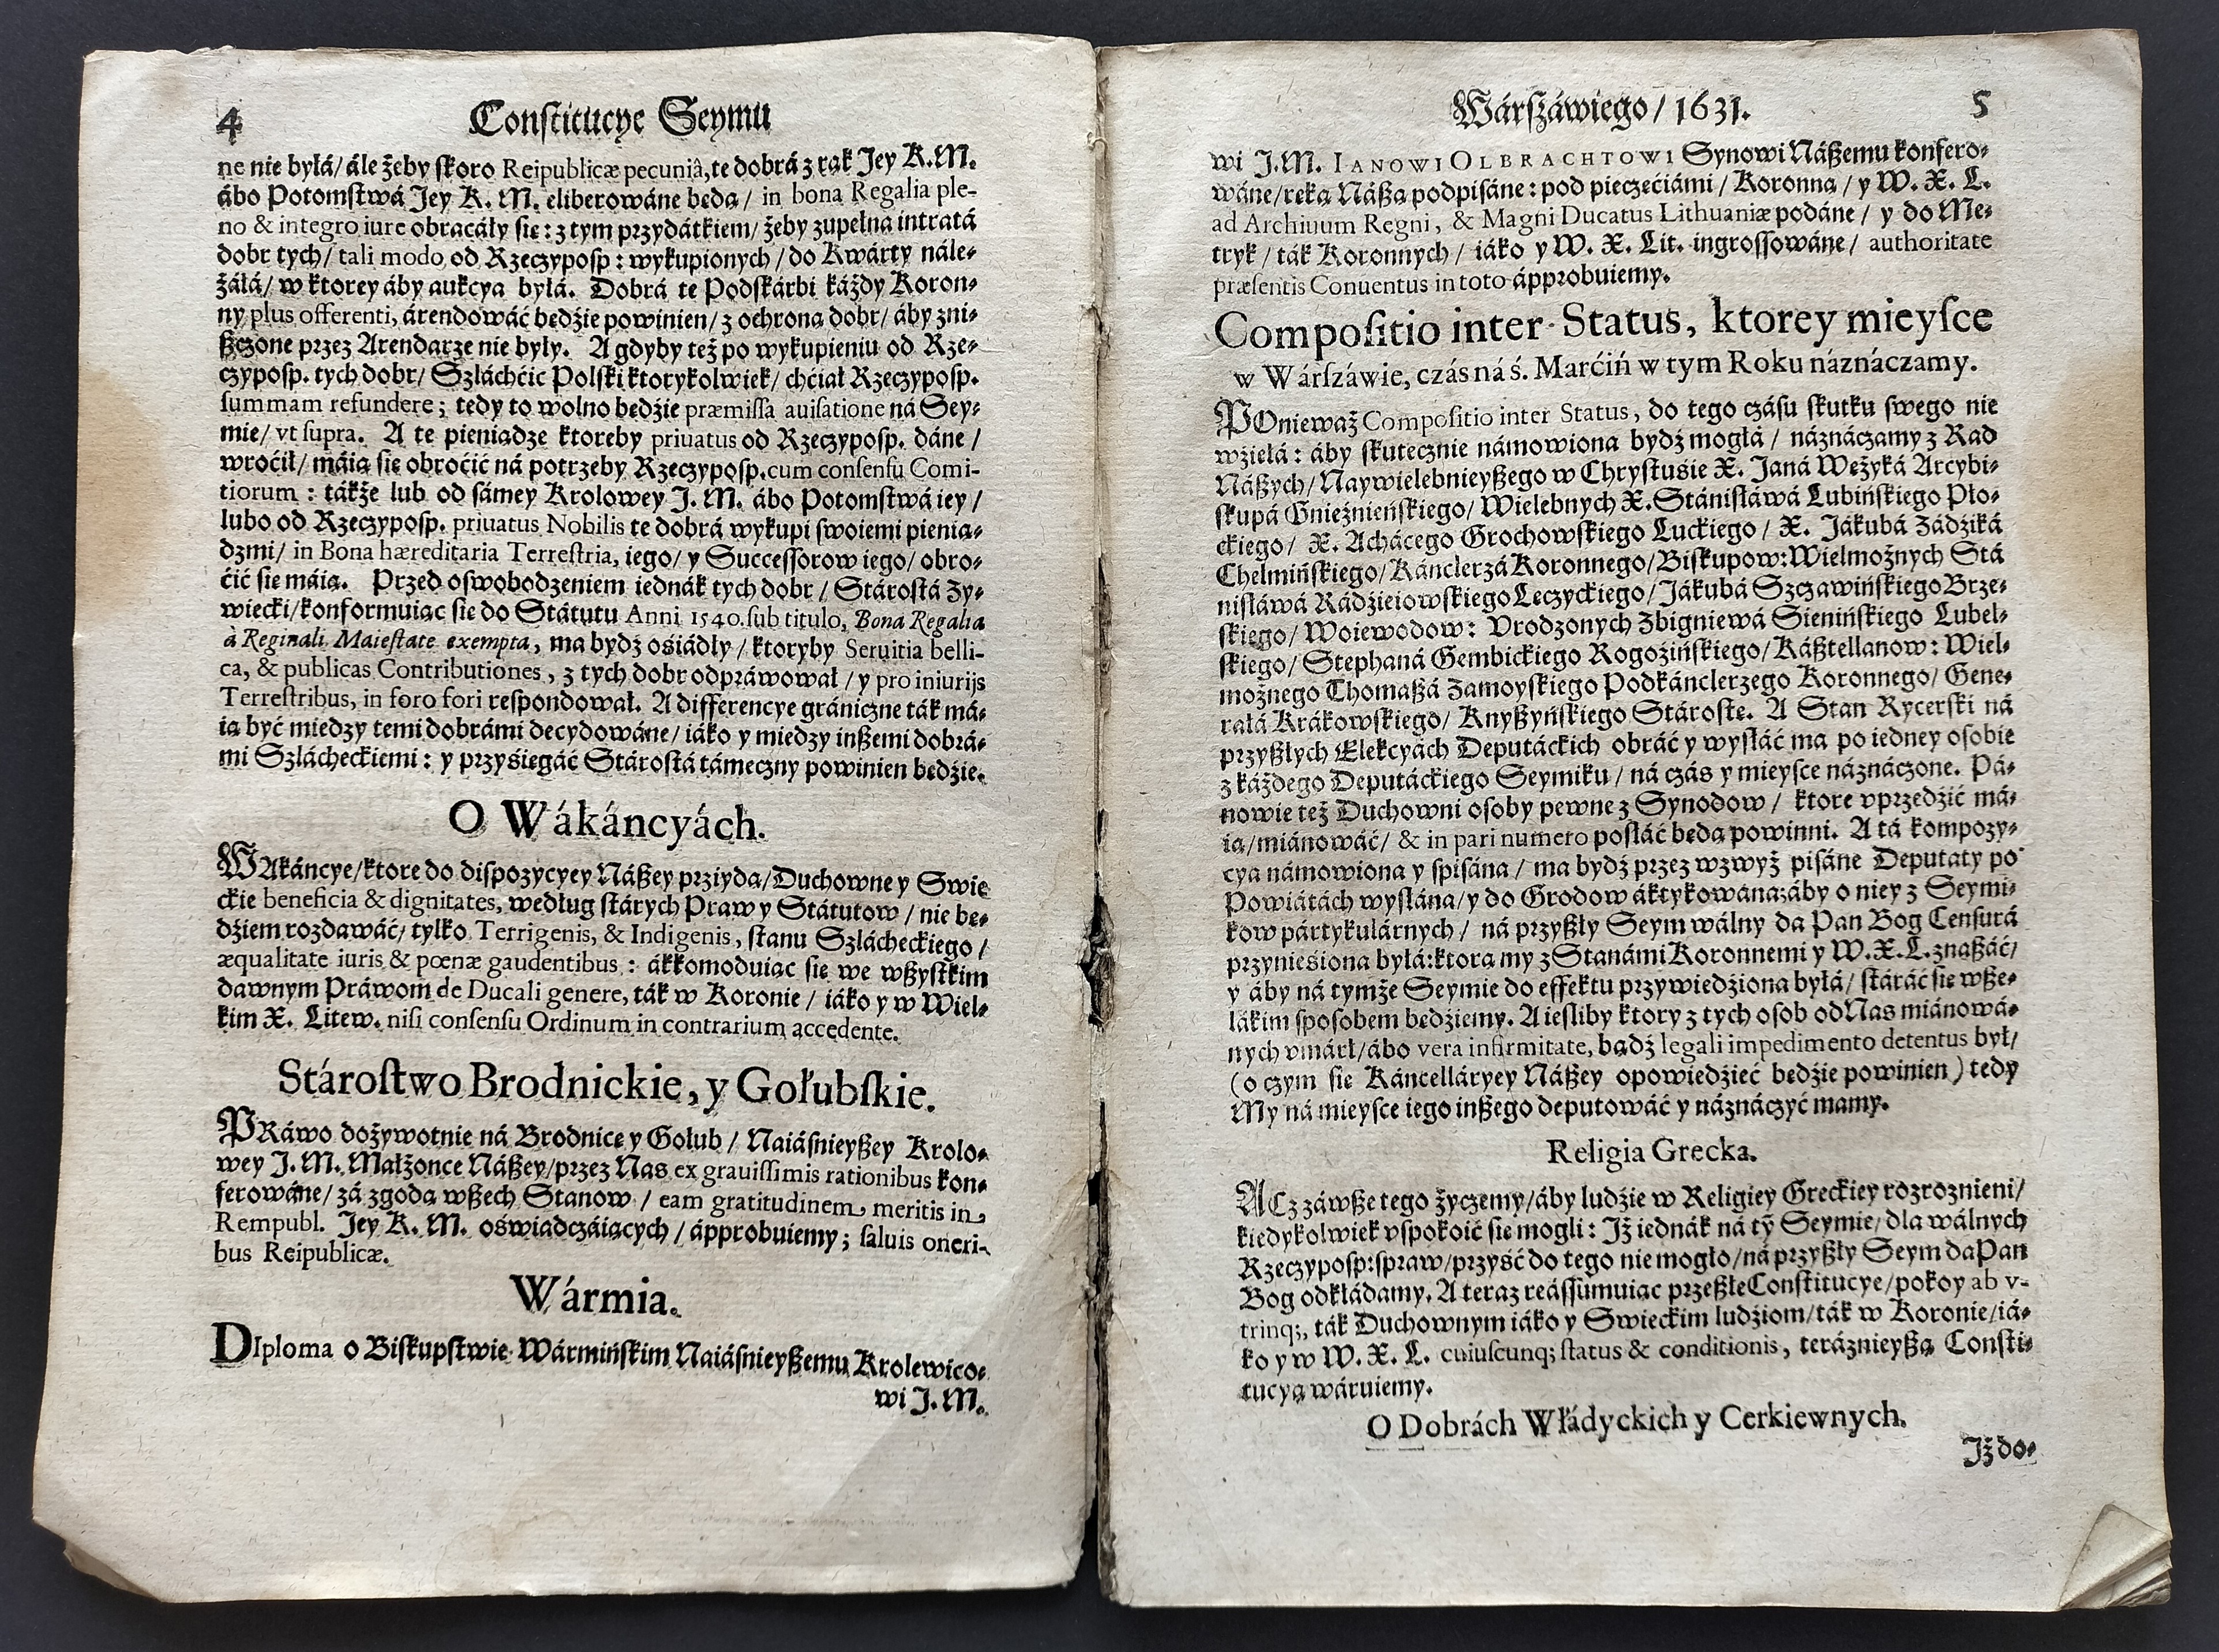 4 Constitucye Seymu
ne nie byłá/ ále żeby skoro Reipublicæ pecuniâ, te dobrá z rąk Jey K.M.
ábo Potomstwá Jey K. M. eliberowáne będą/ in bona Regalia ple-
no & integro iure obracáły się: z tym przydátkiem/ żeby zupełna intratá
dobr tych/ tali modo od Rzeczyposp: wykupionych/ do Kwárty nále-
żáłá/ w ktorey áby aukcya byłá. Dobrá te Podskárbi káżdy Koron-
ny plus offerenti, árendowáć będźie powinien/ z ochroną dobr/ áby zni-
szczone przez Arendarze nie były. A gdyby też po wykupieniu od Rze-
czyposp. tych dobr/ Szláchćic Polski ktorykolwiek/ chćiał Rzeczyposp.
summam refundere; tedy to wolno będźie præmissa auisatione ná Sey-
mie/ vt supra. A te pieniądze ktoreby priuatus od Rzeczyposp. dáne/
wroćił/ máią się obroćić ná potrzeby Rzeczyposp. cum consensu Comi-
tiorum: tákże lub od sámey Krolowey J. M. ábo Potomstwá iey/
lubo od Rzeczyposp. priuatus Nobilis te dobrá wykupi swoiemi pienią-
dzmi/ in Bona hæreditaria Terrestria, iego/ y Successorow iego/ obro-
ćić się máią. Przed oswobodzeniem iednák tych dobr/ Stárostá Zy-
wiecki/ konformuiąc się do Státutu Anni 1540. sub titulo, Bona Regalia
à Reginali Maiestate exempta, ma bydź ośiádły/ ktoryby Seruitia belli-
ca, & publicas Contributiones, z tych dobr odpráwował/ y pro iniurijs
Terrestribus, in foro fori respondował. A differencye grániczne ták má-
ią być miedzy temi dobrámi decydowáne/ iáko y miedzy inszemi dobrá-
mi Szlácheckiemi: y przyśięgáć Stárostá támeczny powinien będźie.
O Wákáncyách.
WAkáncye/ ktore do dispozycyey Nászey przyidą/ Duchowne y Swie
ckie beneficia & dignitates, według stárych Praw y Státutow/ nie bę-
dźiem rozdawáć/ tylko Terrigenis, & Indigenis, stanu Szlácheckiego/
æqualitate iuris & pœnæ gaudentibus: ákkomoduiąc się we wszystkim
dawnym Práwom de Ducali genere, ták w Koronie/ iáko y w Wiel-
kim X. Litew. nisi consensu Ordinum in contrarium accedente.
Stárostwo Brodnickie, y Gołubskie.
PRáwo dożywotnie ná Brodnicę y Golub/ Naiáśnieyszey Krolo-
wey J. M. Małżonce Nászey/ przez Nas ex grauissimis rationibus kon-
ferowáne/ zá zgodą wszech Stanow/ eam gratitudinem meritis in
Rempubl. Jey K. M. oświadczáiących/ ápprobuiemy; saluis oneri-
bus Reipublicæ.
Wármia.
DIploma o Biskupstwie Wármińskim Naiáśnieyszemu Krolewico-
wi J. M.
Wárszáwiego/ 1631. 5
wi J.M. IANOWI OLBRACHTOWI Synowi Nászemu konfero-
wáne/ ręką Nászą podpisáne: pod pieczęćiámi/ Koronną/ y W. X. L.
ad Archiuum Regni, & Magni Ducatus Lithuaniæ podáne/ y do Me-
tryk/ ták Koronnych/ iáko y W. X. Lit. ingrossowáne/ authoritate
præsentis Conuentus in toto ápprobuiemy.
Compositio inter Status, ktorey mieysce
w Wárszáwie, czás ná ś. Marćiń w tym Roku náznáczamy.
POnieważ Compositio inter Status, do tego czásu skutku swego nie
wźięłá: áby skutecznie námowiona bydź mogłá/ náznáczamy z Rad
Nászych/ Naywielebnieyszego w Chrystuśie X. Janá Wężyká Arcybi-
skupá Gnieźnieńskiego/ Wielebnych X. Stánisławá Lubińskiego Pło-
ckiego/ X. Achácego Grochowskiego Luckiego/ X. Jákubá Zádźiká
Chelmińskiego/ Kánclerzá Koronnego/ Biskupow: Wielmożnych Stá
nisłáwá Rádźieiowskiego Lęczyckiego/ Jákubá Szczawińskiego Brze-
skiego/ Woiewodow: Vrodzonych Zbigniewá Sienińskiego Lubel-
skiego/ Stephaná Gembickiego Rogoźińskiego/ Kásztellanow: Wiel-
możnego Thomaszá Zamoyskiego Podkánclerzego Koronnego/ Gene-
rałá Krákowskiego/ Knyszyńskiego Stárostę. A Stan Rycerski ná
przyszłych Elekcyách Deputáckich obráć y wysłáć ma po iedney osobie
z káżdego Deputáckiego Seymiku/ ná czás y mieysce náznáczone. Pá-
nowie też Duchowni osoby pewne z Synodow/ ktore vprzedźić má-
ią/ miánowáć/ & in pari numero posłáć będą powinni. A tá kompozy-
cya námowiona y spisána/ ma bydź przez wzwyż pisáne Deputaty po
Powiátách wysłána/ y do Grodow áktykowána: áby o niey z Seymi-
kow pártykulárnych/ ná przyszły Seym wálny da Pan Bog Censurá
przynieśiona byłá: ktorą my z Stanámi Koronnemi y W. X. L. znaszáć/
y áby ná tymże Seymie do effektu przywiedźiona byłá/ stáráć się wsze-
lákim sposobem będźiemy. A iesliby ktory z tych osob od Nas miánowá-
nych vmárł/ ábo vera infirmitate, bądź legali impedimento detentus był/
(o czym się Káncelláryey Nászey opowiedźieć będźie powinien) tedy
My ná mieysce iego inszego deputowáć y náznáczyć mamy.
Religia Grecka.
ACz záwsze tego życzemy/ áby ludźie w Religiey Greckiey rozroznieni/
kiedykolwiek vspokoić się mogli: Iż iednák ná tỹ Seymie/ dla wálnych
Rzeczyposp: spraw/ przyść do tego nie mogło/ ná przyszły Seym da Pan
Bog odkłádamy. A teraz reássumuiąc przeszłe Constitucye/ pokoy ab v-
trinq;, ták Duchownym iáko y Swieckim ludźiom/ ták w Koronie/ iá-
ko y w W. X. L. cuiuscunq; status & conditionis, teráznieyszą Consti-
tucyą wáruiemy.
O Dobrách Włádyckich y Cerkiewnych.
Iż do-